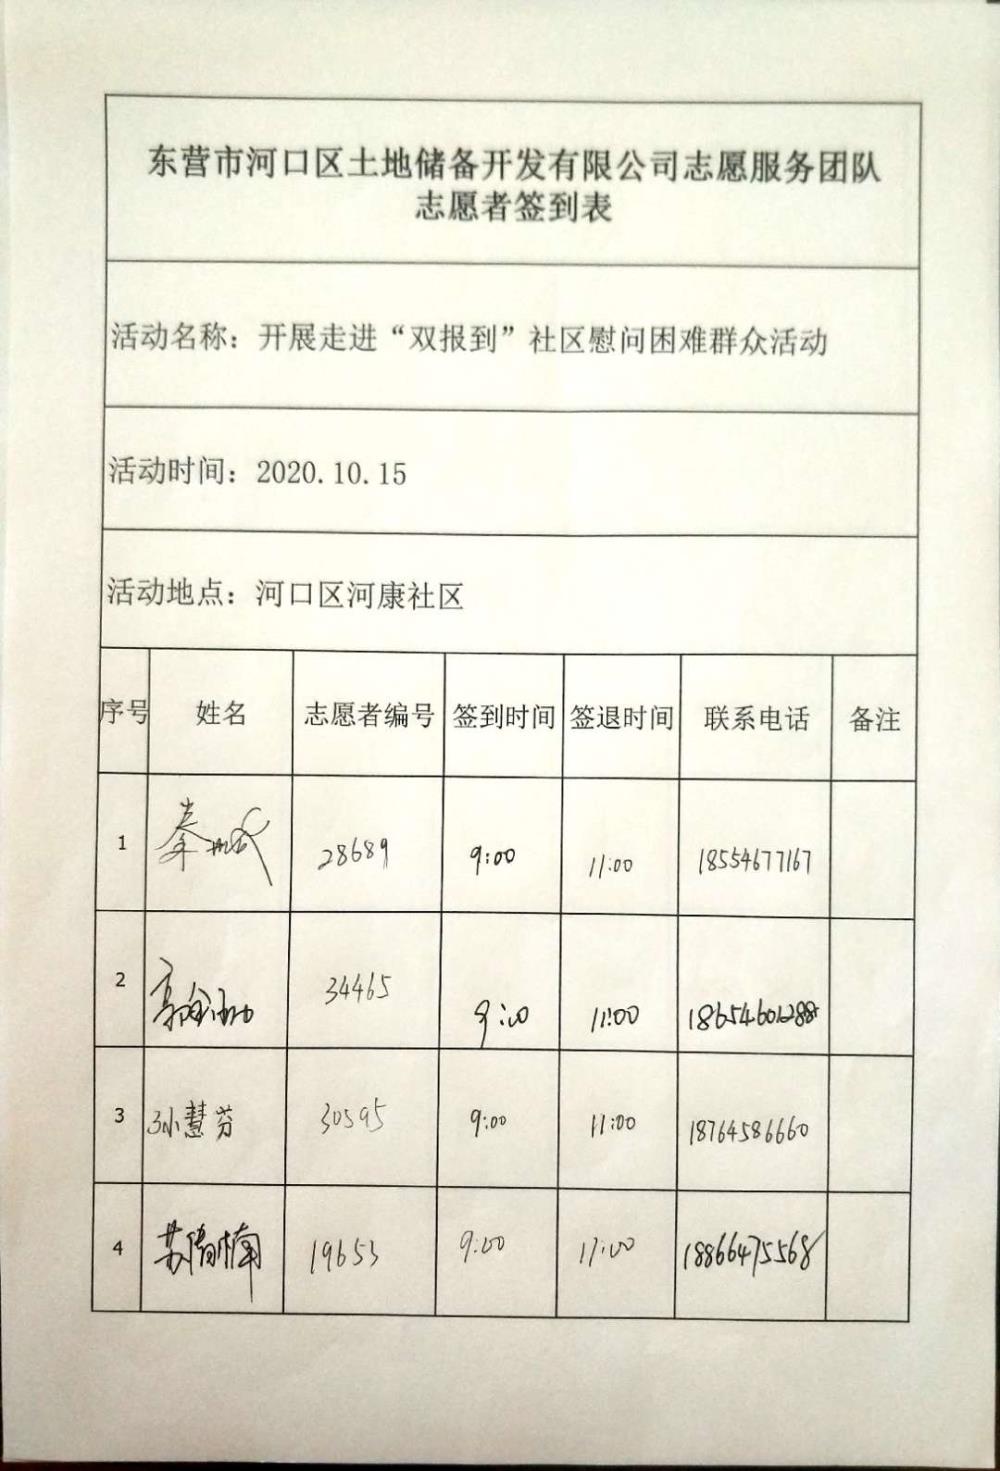 东营市河口区土地储备开发有限公司志愿服务团队
志愿者签到表
活动名称：开展走进“双报到”社区慰问困难群众活动
活动时间：2020.10.15
活动地点：河口区河康社区
序号 姓名 志愿者编号 签到时间 签退时间 联系电话 备注
1 秦 28689 9:00 11:00 18554677167
2 34465 9:00 11:00 18654601288
3 孙慧芬 30595 9:00 11:00 18764586660
4 苏楠 19653 9:00 11:00 18866475568